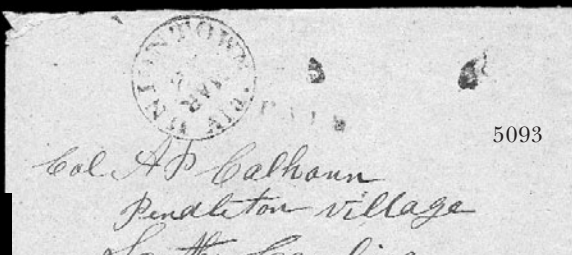 UNIONTOWN ALA.
MAR
PAID
5093
Col A P Calhoun
Pendleton village
South Carolina